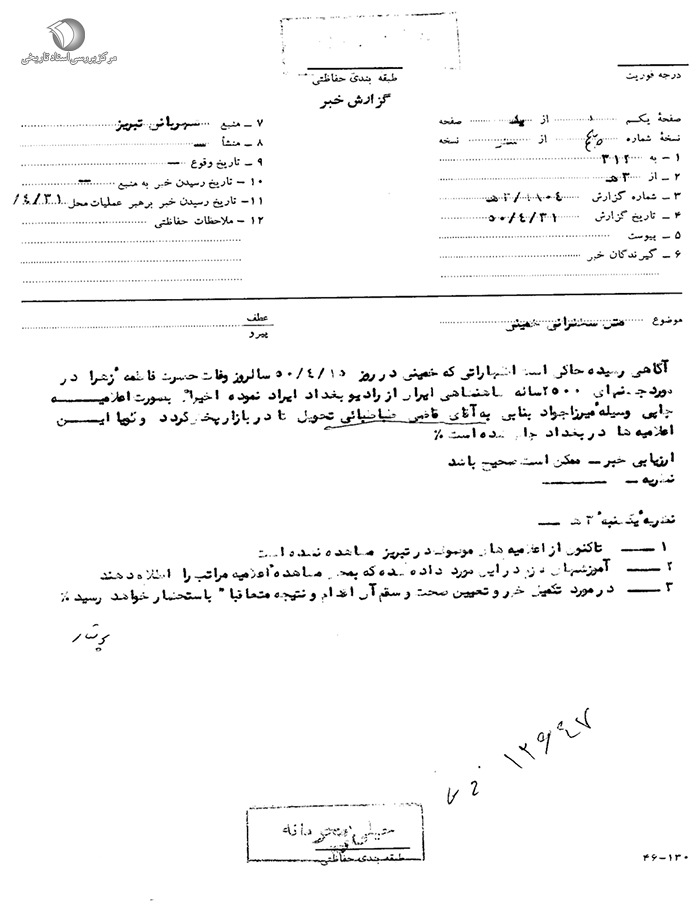 مرکز بررسی اسناد تاریخی
طبقه بندی حفاظتی
گزارش خبر
درجه فوریت
صفحهٔ یکم از یک صفحه
نسخهٔ شماره پنج از نسخه
۱ – به ۳۱۲
۲ – از ۳هـ
۳ – شماره گزارش ۳/۱۱۰۴هـ
۴ – تاریخ گزارش ۵۰/۴/۳۱
۵ – پیوست
۶ – گیرندگان خبر
۷ – منبع شهربانی تبریز
۸ – منشأ —
۹ – تاریخ وقوع —
۱۰ – تاریخ رسیدن خبر به منبع —
۱۱ – تاریخ رسیدن خبر برهبر عملیات محل /۴/۳۱
۱۲ – ملاحظات حفاظتی
موضوع متن سخنرانی خمینی
عطف
پیرو
آگاهی رسیده حاکی است اظهاراتی که خمینی در روز ۵۰/۴/۱۵ سالروز وفات حضرت فاطمه زهرا در
مورد جشنهای ۲۵۰۰ ساله شاهنشاهی ایران از رادیو بغداد ایراد نموده اخیرا" بصورت اعلامیه
چاپی وسیله میرزاجواد بنابی به آقای قاضی طباطبائی تحویل تا در بازار پخش گردد و گویا این
اعلامیه ها در بغداد چاپ شده است٪
ارزیابی خبر – ممکن است صحیح باشد
نظریه –
نظریه یکشنبه ۳هـ —
۱ — تاکنون از اعلامیه های موصوف در تبریز مشاهده نشده است
۲ — آموزشهای لازم در این مورد داده شده که بمحض مشاهده اعلامیه مراتب را اطلاع دهند
۳ — در مورد تکمیل خبر و تعیین صحت و سقم آن اقدام و نتیجه متعاقبا" باستحضار خواهد رسید٪
۱۲۹۹۷
خیلی محرمانه
طبقه بندی حفاظتی
۴۶–۱۳۰